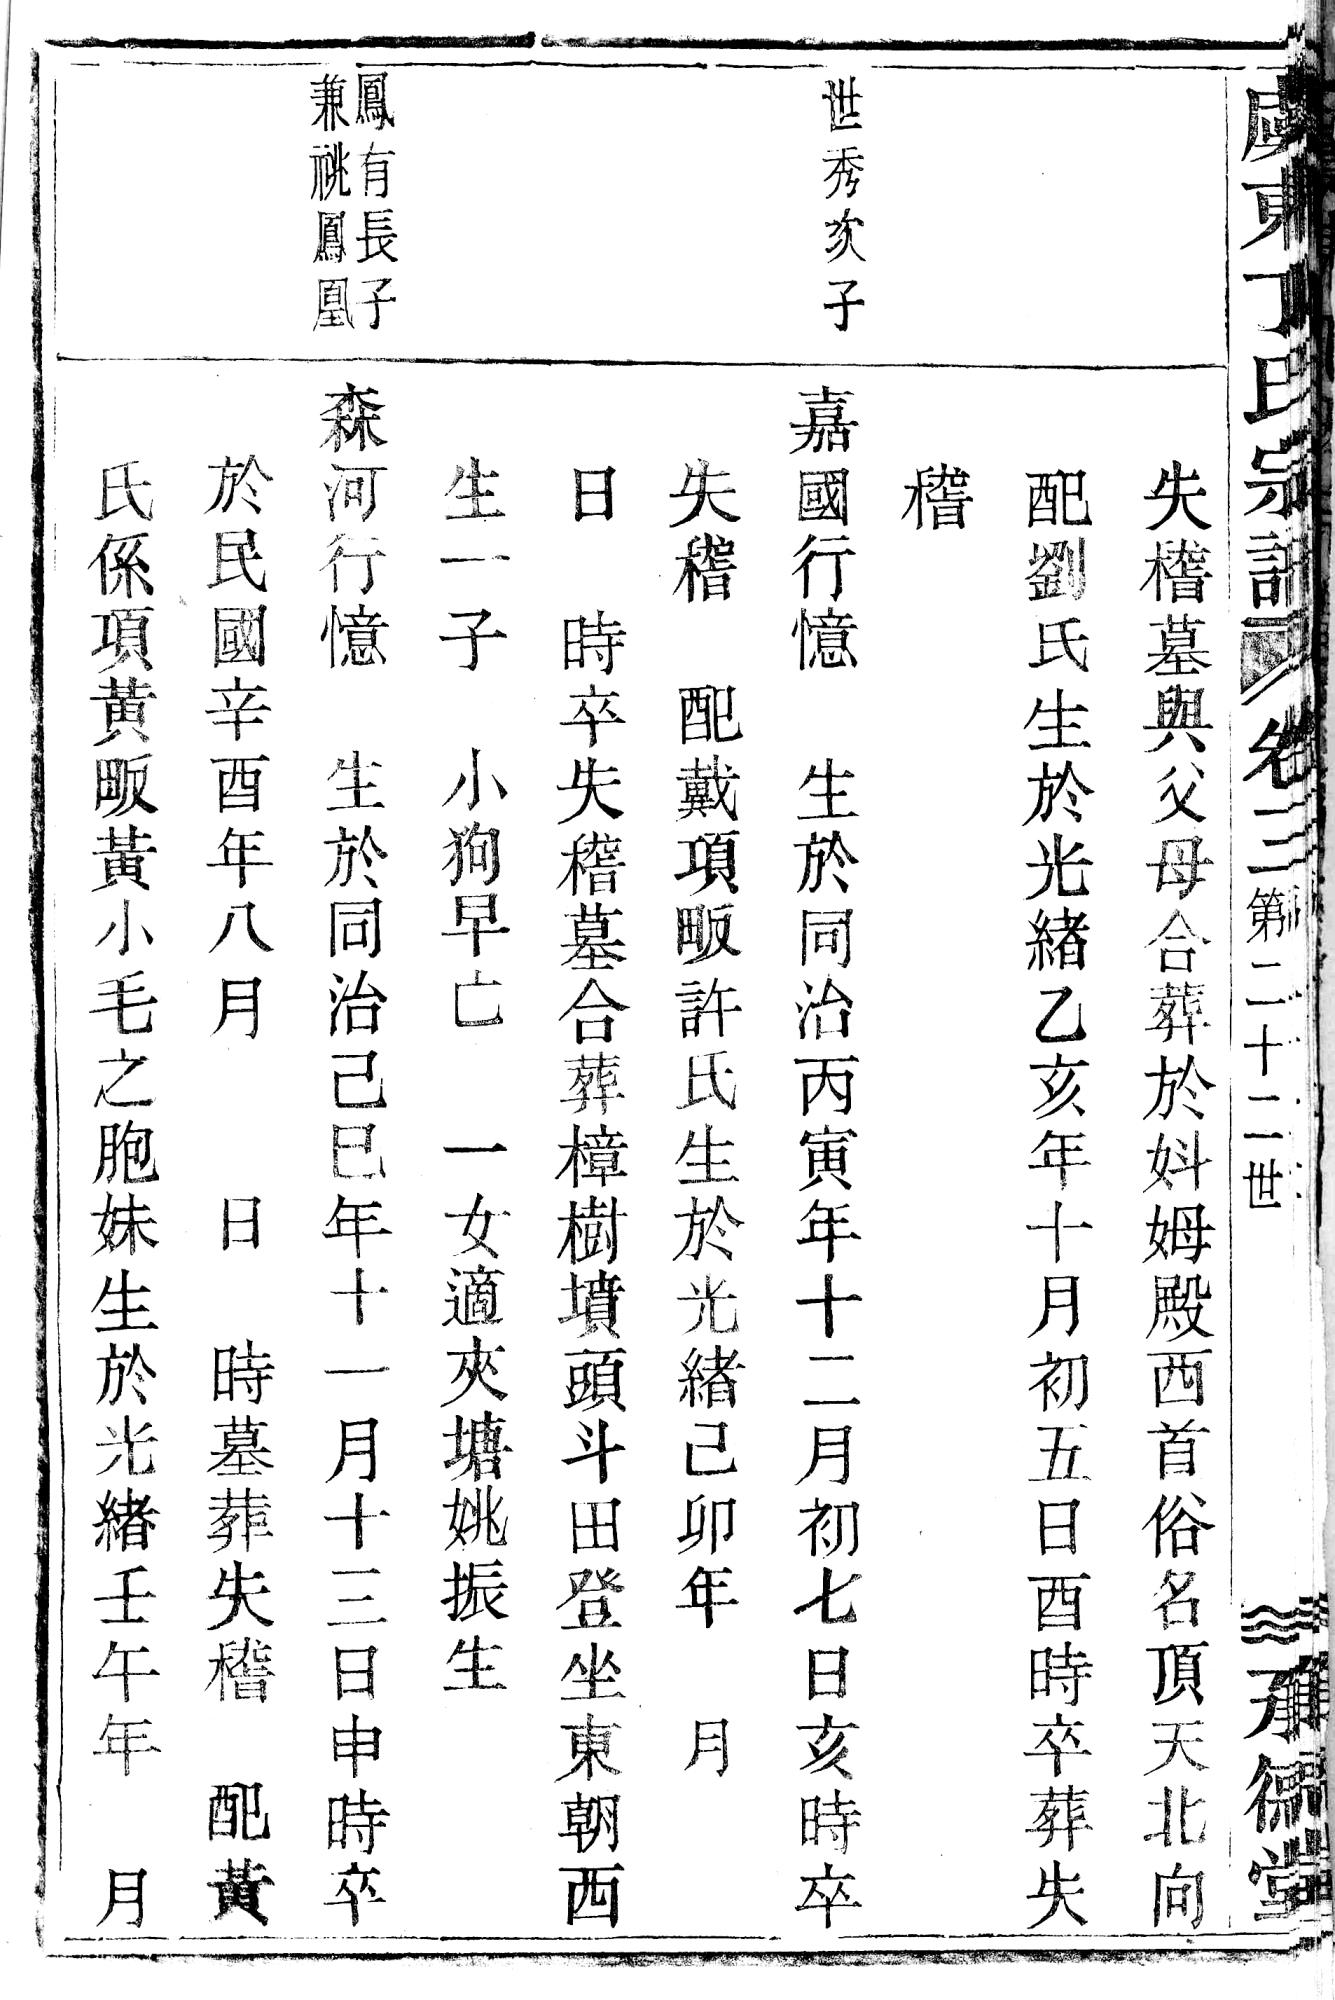 東丁氏宗譜 卷三 第二十二世 承德堂
失稽墓與父母合葬於㚵姆殿西首俗名頂天北向
配劉氏生於光緒乙亥年十月初五日酉時卒葬失
稽
世秀次子
嘉國行憶 生於同治丙寅年十二月初七日亥時卒
失稽 配戴項畈許氏生於光緒己卯年 月
日 時卒失稽墓合葬樟樹墳頭斗田登坐東朝西
生一子 小狗早亡 一女適夾塘姚振生
鳳有長子
兼祧鳳凰
森河行憶 生於同治己巳年十一月十三日申時卒
於民國辛酉年八月 日 時墓葬失稽 配黃
氏係項黃畈黃小毛之胞妹生於光緒壬午年 月